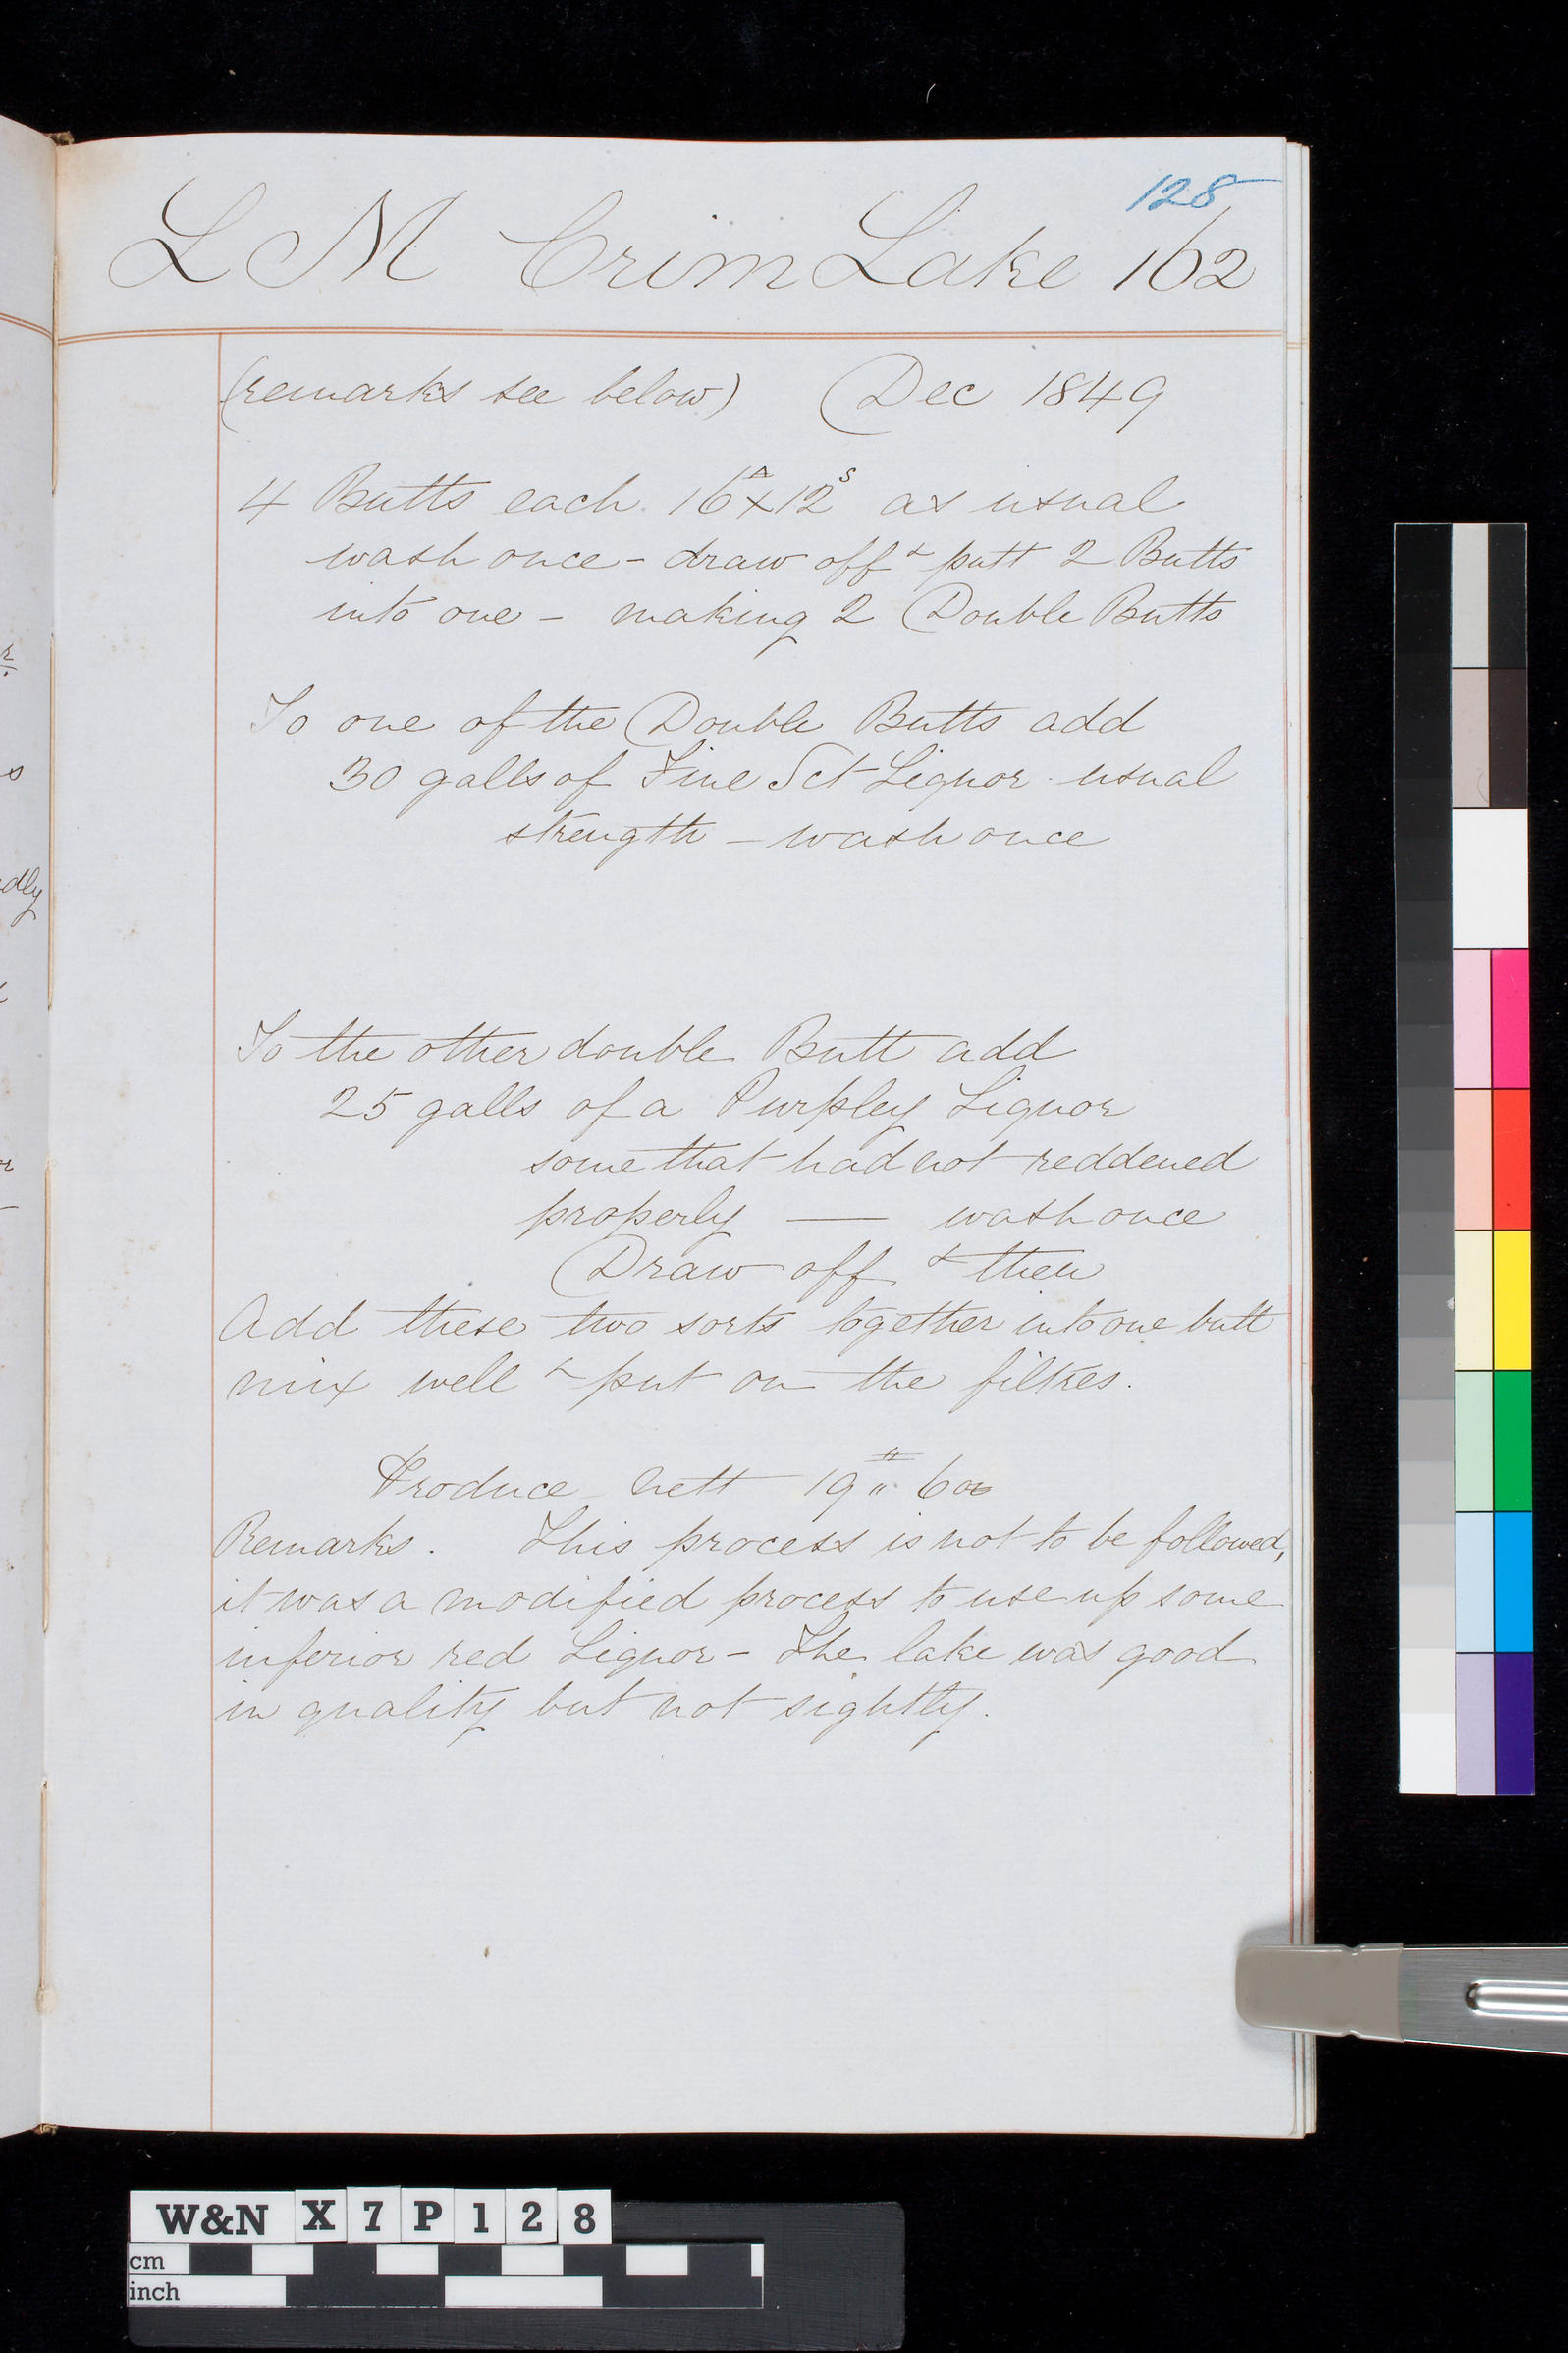 128
L M Crim Lake 162
(remarks see below) Dec 1849
4 Butts each 16^A x 12^S as usual
wash once - draw off & putt 2 Butts
into one - making 2 Double Butts
To one of the Double Butts add
30 galls of Fine Sct Liquor usual
strength - wash once
To the other double Butt add
25 galls of a Purpley Liquor
some that had not reddened
properly — wash once
Draw off & then
Add these two sorts together into one butt
mix well & put on the filtres.
Produce nett 19 lb " 6 oz
Remarks. This process is not to be followed,
it was a modified process to use up some
inferior red Liquor - The lake was good
in quality but not sightly.
r
s
dly
r
W&N X 7 P 1 2 8
cm
inch